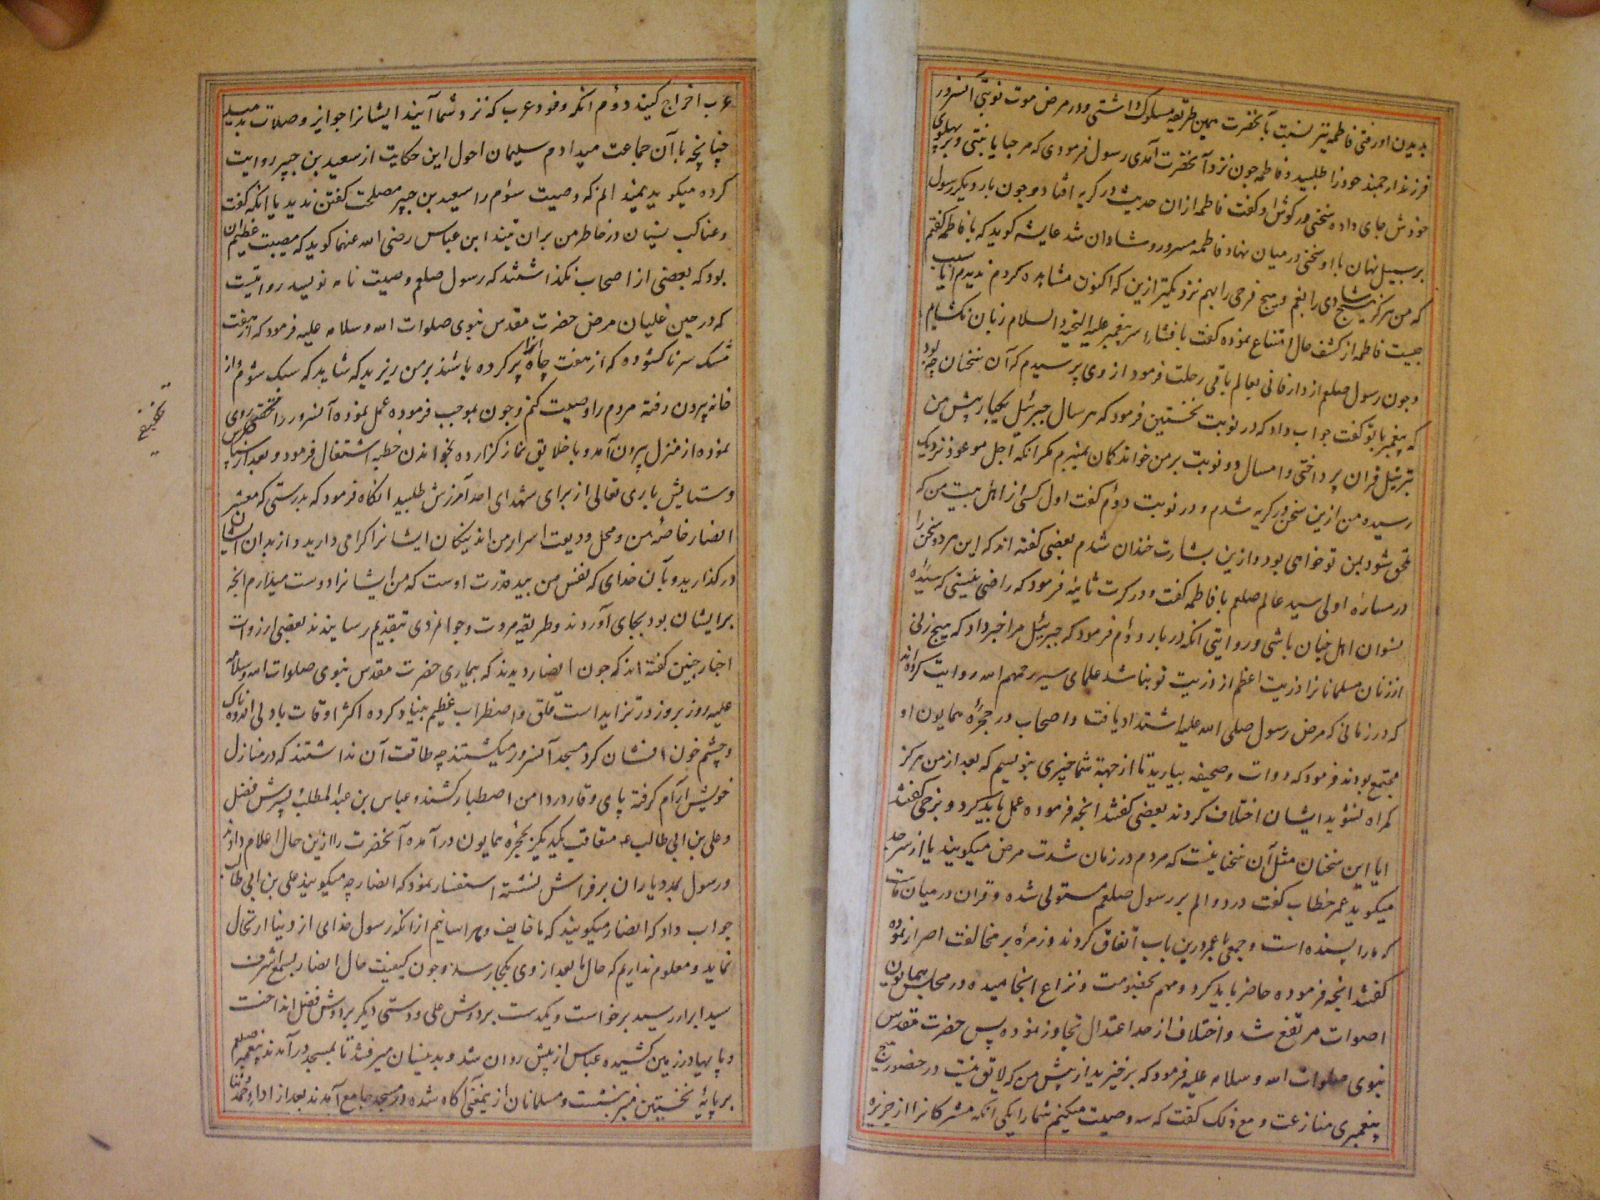 بدیدن او رفتی فاطمه نیز نسبت بآنحضرت همین طریقه مسلوک داشتی و در مرض موت نوبتی آنسرور
فرزند ارجمند خود را طلبید و فاطمه چون نزد آنحضرت آمدی رسول فرمودی که مرحبا یا بنتی و بر پهلوی
خودش جای داده سخنی در گوش او گفت فاطمه ازان حدیث در گریه افتاد و چون بار دیگر رسول
بر سبیل نهان با او سخنی در میان نهاد فاطمه مسرور و شادان شد عایشه گوید که با فاطمه گفتم
که من هرگز هیچ شادی را بغم و هیچ فرحی را بهم نزدیکتر ازین که اکنون مشاهده کردم ندیدم آیا سبب
چیست فاطمه از کشف حال امتناع نموده گفت بافشاء سر پیغمبر علیه التحیة والسلام زبان نکشایم
و چون رسول صلعم از دار فانی بعالم باقی رحلت فرمود از وی پرسیدم که آن سخنان چه بود
که پیغمبر با تو گفت جواب داد که در نوبت نخستین فرمود که هر سال جبرئیل یکبار پیش من
بتنزیل قرآن پرداختی و امسال دو نوبت بر من خواند گمان نمیبرم مگر آنکه اجل موعود نزدیک
رسیده من ازین سخن در گریه شدم و در نوبت دوم گفت اول کسی از اهل بیت من که
ملحق شود بمن تو خواهی بود و ازین بشارت خندان شدم بعضی گفته اند که این هر دو سخن را
در مساره اولی سید عالم صلعم با فاطمه گفت و در کرت ثانیه فرمود که راضی نیستی که سیده
نسوان اهل جنان باشی و روایتی آنکه در بار دوم فرمود که جبرئیل مرا خبر داد که هیچ زنی
از زنان مسلمانان را ذریت اعظم از ذریت تو نباشد علمای سیر رحمهم الله روایت کرده اند
که در زمانی که مرض رسول صلی الله علیه اشتداد یافت و اصحاب در حجره همایون او
مجتمع بودند فرمود که دوات و صحیفه بیارید تا از جهة شما چیزی بنویسم که بعد از من هرگز
گمراه نشوید ایشان اختلاف کردند بعضی گفتند آنچه فرموده عمل باید کرد و برخی گفتند
آیا این سخنان مثل آن سخنانیست که مردم در زمان شدت مرض میگویند یا از سر جد
میگوید عمر خطاب گفت درد و الم بر رسول صلعم مستولی شده و قرآن در میان ماست
که ما را بسنده است و جمعی با عمر درین باب اتفاق کردند و زمرهٔ بر مخالفت اصرار نموده
گفتند آنچه فرموده حاضر باید کرد و مهم بخصومت و نزاع انجامیده در مجلس همایون
اصوات مرتفع شد و اختلاف از حد اعتدال تجاوز نموده پس حضرت مقدس
نبوی صلوات الله و سلامه علیه فرمود که برخیزید از پیش من که لایق نیست در حضور هیچ
پیغمبری منازعت و مع ذلک گفت که سه وصیت میکنم شما را یکی آنکه مشرکانرا از جزیره
عرب اخراج کنید دوم آنکه وفود عرب که نزد شما آیند ایشانرا جوایز و صلات بدهید
چنانچه بآن جماعت میدادم سلیمان احول این حکایت از سعید بن جبیر روایت
کرده میگوید نمیدانم که وصیت سوم را سعید بن جبیر مصلحت گفتن ندید یا آنکه گفت
و عناکب نسیان در خاطر من بران تنید ابن عباس رضی الله عنهما گوید که مصیبت عظیم آن
بود که بعضی از اصحاب نگذاشتند که رسول صلعم وصیت نامه نویسد روایتست
که در حین غلیان مرض حضرت مقدس نبوی صلوات الله و سلامه علیه فرمود که از هفت
مشک سر ناگشوده که از هفت چاه پر کرده باشند بر من ریزید که شاید که سبک شوم و از
خانه بیرون رفته مردم را وصیت کنم و چون بموجب فرموده عمل نموده آنسرور را خفتی روی
نموده از منزل بیرون آمد و با خلایق نماز گزارده بخواندن خطبه اشتغال فرمود و بعد از سپاس
و ستایش باری تعالی از برای شهدای احد آمرزش طلبید آنگاه فرمود که بدرستی که معشر
انصار خاصه من و محل ودیعت اسرار من اند نیکان ایشانرا گرامی دارید و از بدان ایشان
در گذارید و بآن خدای که نفس من بید قدرت اوست که من ایشانرا دوست میدارم آنچه
بر ایشان بود بجای آوردند و طریقه مروت و جوانمردی بتقدیم رسانیدند بعضی از روات
اخبار چنین گفته اند که چون انصار دیدند که بیماری حضرت مقدس نبوی صلوات الله و سلامه
علیه روز بروز در تزاید است قلق و اضطراب عظیم بنیاد کرده اکثر اوقات با دلی اندوهناک
و چشم خون افشان گرد مسجد آنسرور میگشتند چه طاقت آن نداشتند که در منازل
خویش آرام گرفته پای وقار در دامن اصطبار کشند و عباس بن عبد المطلب پسرش فضل
و علی بن ابی طالب عه متعاقب یکدیگر بحجره همایون در آمده آنحضرت را ازین حال اعلام دادند
و رسول بمدد یاران بر فراش نشسته استفسار نمود که انصار چه میگویند علی بن ابی طالب
جواب داد که انصار میگویند که ما خایف و هراسانیم از آنکه رسول خدای از دنیا ارتحال
نماید و معلوم نداریم که حال ما بعد از وی بکجا رسد و چون کیفیت حال انصار بسمع اشرف
سید ابرار رسید برخواست و یکدست بر دوش علی و دستی دیگر بر دوش فضل انداخت
و پایها در زمین کشیده عباس از پیش روان شد و بدینسان میرفتند تا بمسجد در آمدند پیغمبر صلعم
بر پایهٔ نخستین منبر بنشست و مسلمانان از یمعنی آگاه شده در مسجد جامع آمدند بعد از اداء حمد و ثنا